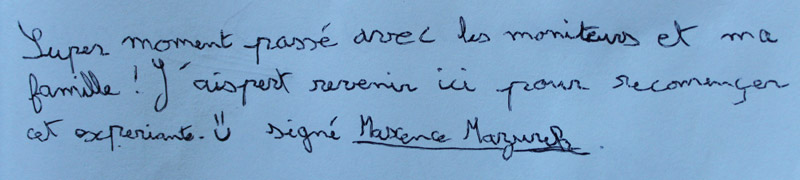 Super moment passé avec les moniteurs et ma
famille ! J'aispert revenir ici pour recomençer
cet experiante. signé Maxence Mazurek